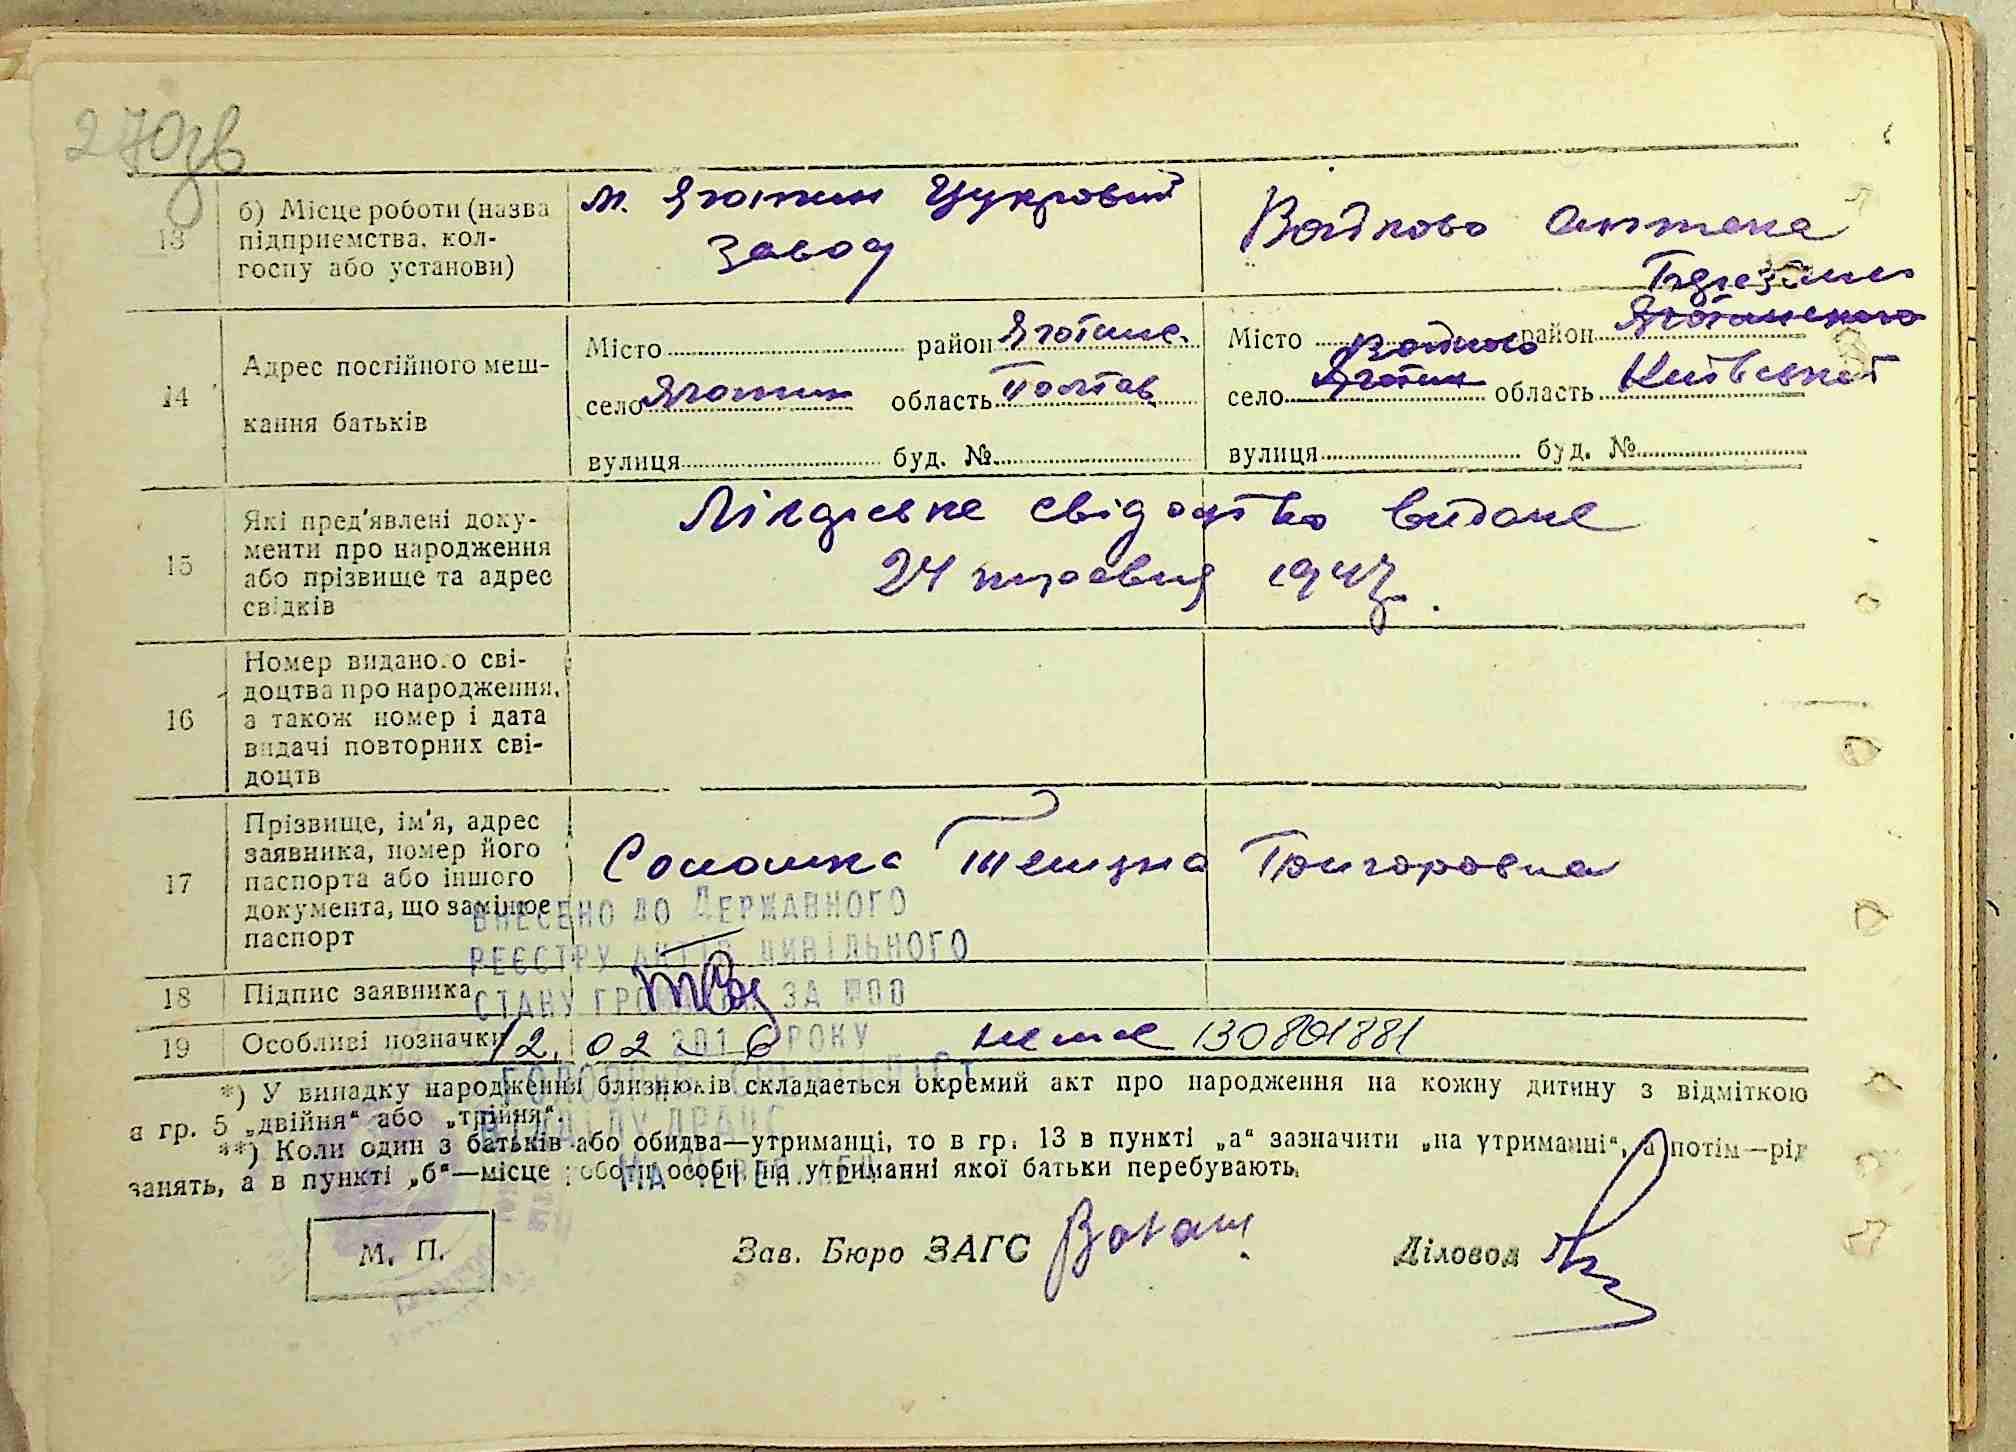 270зв
13
б) Місце роботи (назва
підприємства, кол-
госпу або установи)
м. Яготин Цукровий
завод
Войково аптека
14
Адрес постійного меш-
кання батьків
Місто район Яготинс.
село Яготин область Полтав
вулиця буд. №
Березань
Місто район Яготинского
Войково
село Яготин область Київської
вулиця буд. №
15
Які пред'явлені доку-
менти про народження
або прізвище та адрес
свідків
Лікарське свідоцтво видане
24 травня 1947.
16
Номер виданого сві-
доцтва про народження,
а також номер і дата
видачі повторних сві-
доцтв
17
Прізвище, ім'я, адрес
заявника, номер його
паспорта або іншого
документа, що замінює
паспорт
Григоровна
ВНЕСЕНО ДО ДЕРЖАВНОГО
РЕЄСТРУ АКТІВ ЦИВІЛЬНОГО
СТАНУ ГРОМАДЯН ЗА №00
18
Підпис заявника
19
Особливі позначки
12. 02 2016 РОКУ
нема 130801881
*) У випадку народження близнюків складається окремий акт про народження на кожну дитину з відміткою
в гр. 5 „двійня“ або „трійня“.
**) Коли один з батьків або обидва—утриманці, то в гр. 13 в пункті „а“ зазначити „на утриманні“, а потім—рід
занять, а в пункті „б“—місце роботи особи, на утриманні якої батьки перебувають.
М. П.
Зав. Бюро ЗАГС
Діловод